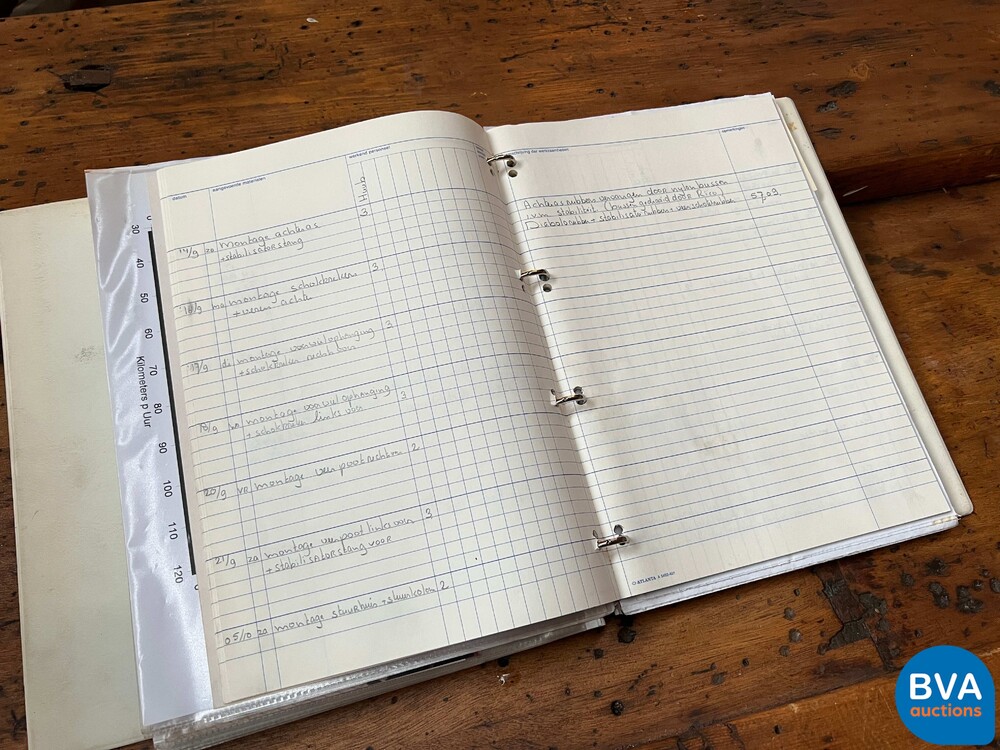 datum
aangewende materialen
werkend personeel
Huub
14/9 za Montage achteras 3
+ stabilisatorstang
montage schokbrekers 3
+ veren achter
di montage voorwielophanging 3
+ schokbreker rechtsvoor
montage voorwielophanging 3
+ schokbreker links voor
20/9 vr montage veerpoot rechtsvoor 2
21/9 za montage veerpoot linksvoor 3
+ stabilisatorstang voor
05/10 za montage stuurhuis + stuurkolom 2
omschrijving der werkzaamheden
opmerkingen
Achteras rubbers vervangen door nylon bussen
ivm stabiliteit (bussen gedraaid door Rico)
Diabolorubbers + stabilisatorrubbers + veerschotelrubbers
57,03
ATLANTA
30
40
50
60
70
80
90
100
110
120
Kilometers p Uur
BVA
auctions